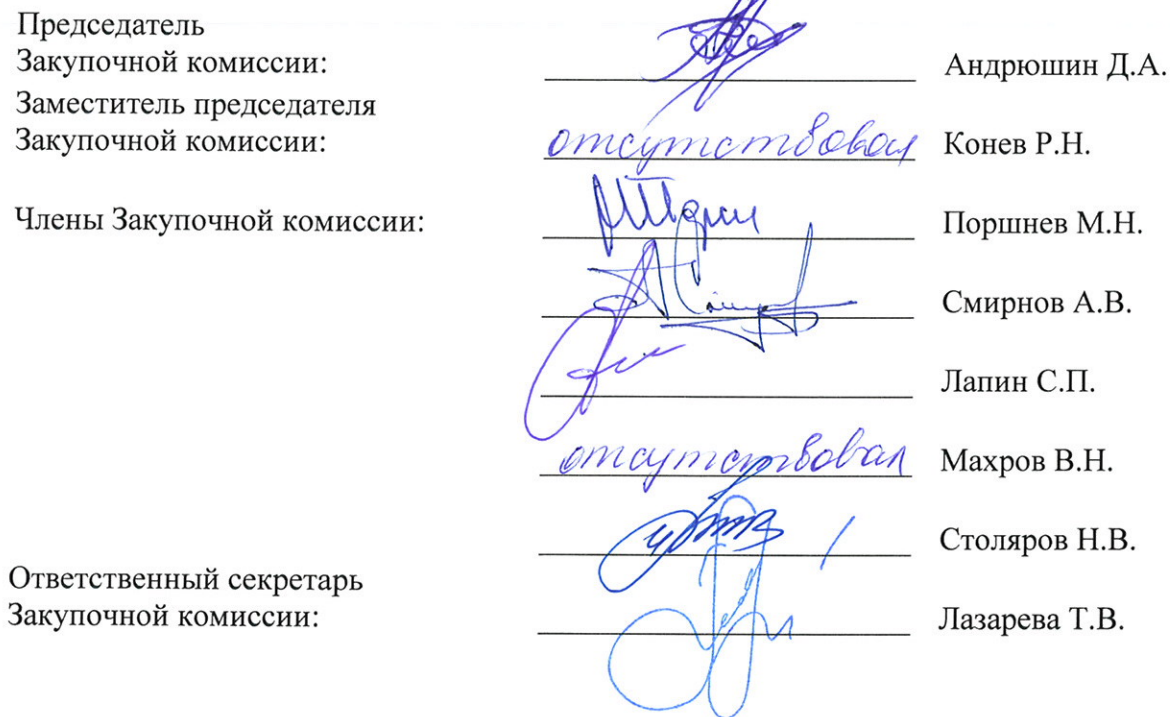 Председатель
Закупочной комиссии: Андрюшин Д.А.
Заместитель председателя
Закупочной комиссии: отсутствовал Конев Р.Н.
Члены Закупочной комиссии: Поршнев М.Н.
Смирнов А.В.
Лапин С.П.
отсутствовал Махров В.Н.
Столяров Н.В.
Ответственный секретарь
Закупочной комиссии: Лазарева Т.В.